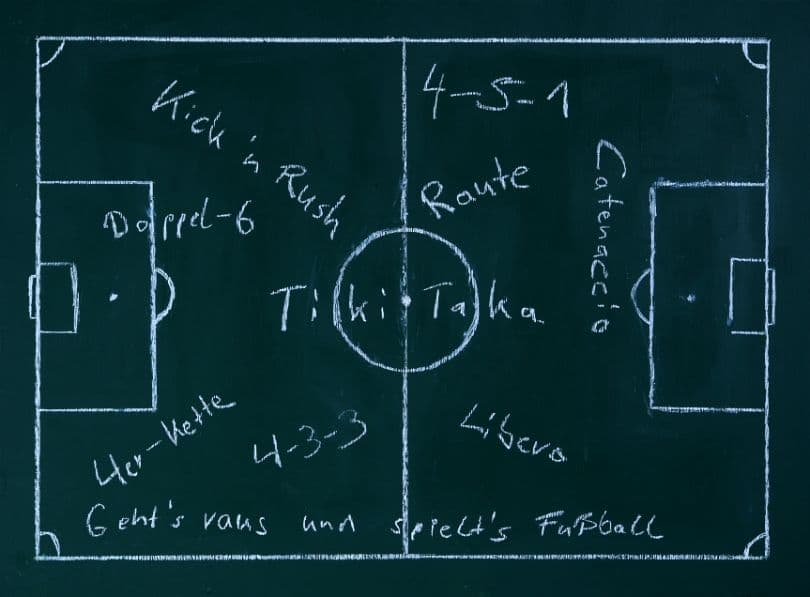 4-5-1
Kick 'n Rush
Raute
Catenaccio
Doppel-6
Tiki Taka
4er-Kette
4-3-3
Libero
Geht's raus und spielt's Fußball